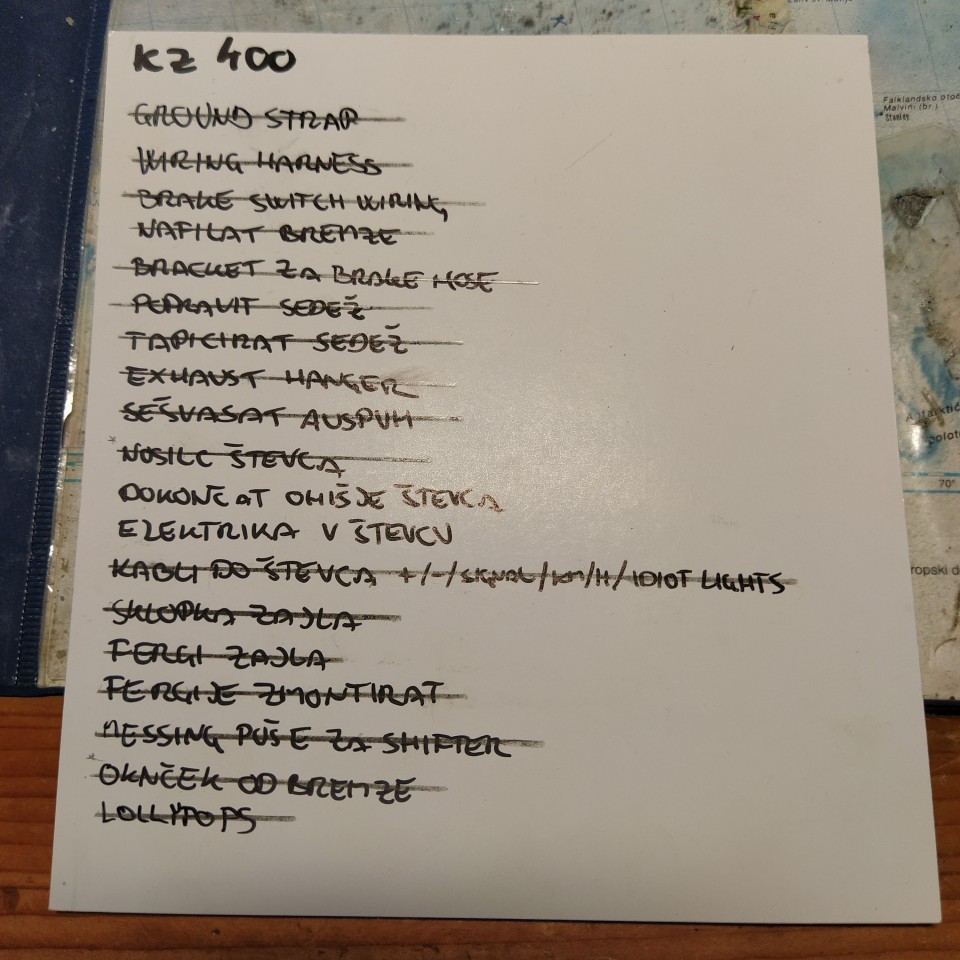 KZ 400
GROUND STRAP
WIRING HARNESS
BRAKE SWITCH WIRING
NAFILAT BREMZE
BRACKET ZA BRAKE HOSE
POPRAVIT SEDEŽ
TAPICIRAT SEDEŽ
EXHAUST HANGER
SEŠVASAT AUSPUH
NOSILC ŠTEVCA
DOKONČAT OHIŠJE ŠTEVCA
ELEKTRIKA V ŠTEVCU
KABLI DO ŠTEVCA +/-/SIGNAL/KM/H/IDIOT LIGHTS
SKLOPKA ZAJLA
FERGI ZAJLA
FERGIJE ZMONTIRAT
MESSING PUŠE ZA SHIFTER
OKNČEK OD BREMZE
LOLLYPOPS
Falklandsko otoč
Malvini (br.)
Stanley
70°